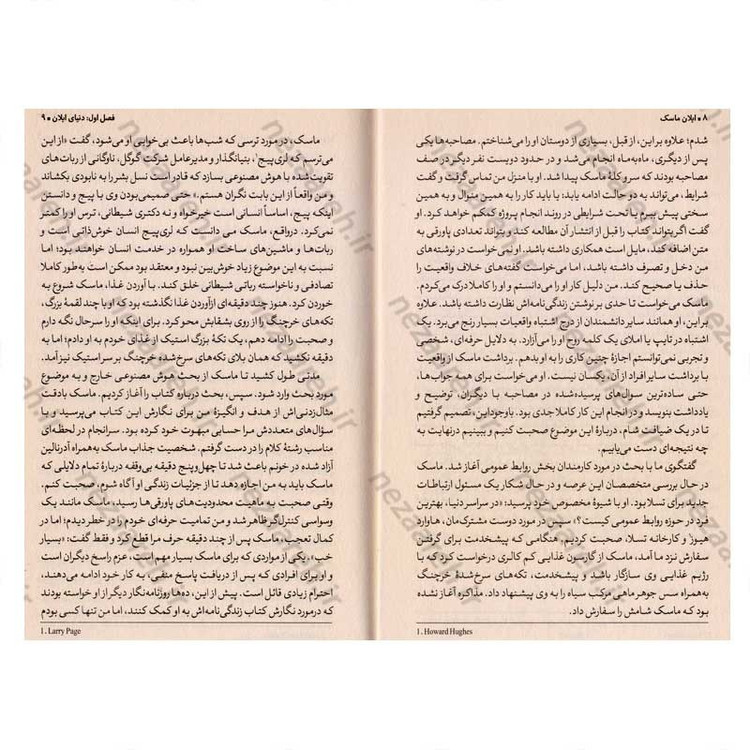 ۸ ● ایلان ماسک
شدم؛ علاوه بر این، از قبل، بسیاری از دوستان او را می‌شناختم. مصاحبه‌ها یکی
پس از دیگری، ماه‌به‌ماه انجام می‌شد و در حدود دویست نفر دیگر در صف
مصاحبه بودند که سروکلهٔ ماسک پیدا شد. او با منزل من تماس گرفت و گفت
شرایط، می‌تواند به دو حالت ادامه یابد: یا باید کار را به همین منوال و به همین
سختی پیش ببرم یا تحت شرایطی در روند انجام پروژه کمکم خواهد کرد. او
گفت اگر بتواند کتاب را قبل از انتشار آن مطالعه کند و بتواند تعدادی پاورقی به
متن اضافه کند، مایل است همکاری داشته باشد. او نمی‌خواست در نوشته‌های
من دخل و تصرف داشته باشد، اما می‌خواست گفته‌های خلاف واقعیت را
حذف یا صحیح کند. من دلیل کار او را می‌دانستم و او را کاملا درک می‌کردم.
ماسک می‌خواست تا حدی بر نوشتن زندگی‌نامه‌اش نظارت داشته باشد. علاوه
بر این، او همانند سایر دانشمندان از درج اشتباه واقعیات بسیار رنج می‌برد. یک
اشتباه در تایپ یا املای یک کلمه روح او را می‌آزارد. به دلایل حرفه‌ای، شخصی
و تجربی نمی‌توانستم اجازهٔ چنین کاری را به او بدهم. برداشت ماسک از واقعیات
با برداشت سایر افراد از آن، یکسان نیست. او می‌خواست برای همه جواب‌ها،
حتی ساده‌ترین سوال‌های پرسیده‌شده در مصاحبه با دیگران، توضیح و
یادداشت بنویسد و در انجام این کار کاملا جدی بود. باوجوداین، تصمیم گرفتیم
تا در یک ضیافت شام، دربارهٔ این موضوع صحبت کنیم و ببینیم درنهایت به
چه نتیجه‌ای دست می‌یابیم.
گفتگوی ما با بحث در مورد کارمندان بخش روابط عمومی آغاز شد. ماسک
در حال بررسی متخصصان این عرصه و در حال شکار یک مسئول ارتباطات
جدید برای تسلا بود. او با شیوهٔ مخصوص خود پرسید: «در سراسر دنیا، بهترین
فرد در حوزه روابط عمومی کیست؟»، سپس در مورد دوست مشترک‌مان، هاوارد
هیوز و کارخانه تسلا، صحبت کردیم. هنگامی که پیشخدمت برای گرفتن
سفارش نزد ما آمد، ماسک از گارسون غذایی کم کالری درخواست کرد که با
رژیم غذایی وی سازگار باشد و پیشخدمت، تکه‌های سرخ‌شدهٔ خرچنگ
به‌همراه سس جوهر ماهی مرکب سیاه را به وی پیشنهاد داد. مذاکره آغاز نشده
بود که ماسک شامش را سفارش داد.
1. Howard Hughes
فصل اول: دنیای ایلان ● ۹
ماسک، در مورد ترسی که شب‌ها باعث بی‌خوابی او می‌شود، گفت «از این
می‌ترسم که لری پیج¹، بنیانگذار و مدیرعامل شرکت گوگل، ناوگانی از ربات‌های
تقویت شده با هوش مصنوعی بسازد که قادر است نسل بشر را به نابودی بکشاند
و من واقعاً از این بابت نگران هستم.» حتی صمیمی‌بودن وی با پیج و دانستن
اینکه پیج، اساساً انسانی است خیرخواه و نه دکتری شیطانی، ترس او را کمتر
نمی‌کرد. درواقع، ماسک می دانست که لری‌پیج انسان خوش‌ذاتی است و
ربات‌ها و ماشین‌های ساخت او همواره در خدمت انسان خواهند بود؛ اما
نسبت به این موضوع زیاد خوش‌بین نبود و معتقد بود ممکن است به‌طور کاملا
تصادفی و ناخواسته رباتی شیطانی خلق کند. با آوردن غذا، ماسک شروع به
خوردن کرد. هنوز چند دقیقه‌ای از آوردن غذا نگذشته بود که او با چند لقمهٔ بزرگ،
تکه‌های خرچنگ را از روی بشقابش محو کرد. برای اینکه او را سرحال نگه دارم
و صحبت را ادامه دهم، یک تکهٔ بزرگ استیک از غذای خودم به او دادم؛ اما به
دقیقه نکشید که همان بلای تکه‌های سرخ‌شده خرچنگ بر سر استیک نیز آمد.
مدتی طول کشید تا ماسک از بحث هوش مصنوعی خارج و به موضوع
مورد بحث وارد شود. سپس، بحث درباره کتاب را آغاز کردیم. ماسک بادقت
مثال‌زدنی‌اش از هدف و انگیزهٔ من برای نگارش این کتاب می‌پرسید و با
سؤال‌های متعددش مرا حسابی مبهوت خود کرده بود. سرانجام در لحظه‌ای
مناسب رشتهٔ کلام را در دست گرفتم. شخصیت جذاب ماسک به‌همراه آدرنالین
آزاد شده در خونم باعث شد تا چهل‌وپنج دقیقه بی‌وقفه دربارهٔ تمام دلایلی که
ماسک باید به من اجازه دهد تا از جزئیات زندگی او آگاه شوم، صحبت کنم.
وقتی صحبت به ماهیت محدودیت‌های پاورقی‌ها رسید، ماسک مانند یک
وسواسی کنترل‌گر ظاهر شد و من تمامیت حرفه‌ای خودم را در خطر دیدم؛ اما در
کمال تعجب، ماسک پس از چند دقیقه حرف مرا قطع کرد و فقط گفت: «بسیار
خب». یکی از مواردی که برای ماسک بسیار مهم است، عزم راسخ دیگران است
و او برای افرادی که پس از دریافت پاسخ منفی، به کار خود ادامه می‌دهند،
احترام زیادی قائل است. پیش از این، ده‌ها روزنامه‌نگار دیگر از او خواسته بودند
که درمورد نگارش کتاب زندگی‌نامه‌اش به او کمک کنند، اما من تنها کسی بودم
1. Larry Page
nezaareh.ir